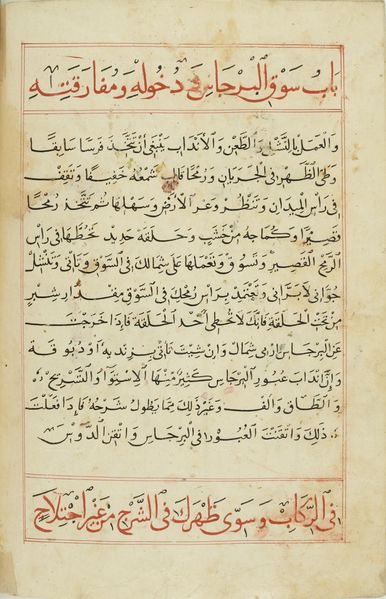 باب سوق البرجاس في دخوله ومفارقته
والعمل بالنشل والطعن والأنداب ينبغي أن تتخذ فرسا سابقا
وطي الظهر في الجريان ورمحا شمعه خفيفا وتقف
في رأس الميدان وتنظر وعر الأرض وسهلها ثم تتخذ رمحا
قصيرا وكماجه من خشب وحلقة حديد تحطها في رأس
الرمح القصير وتسوق وتعملها على شمالك في السوق وتأتي وتنشل
جواني لا براني وتعتمد براس رمحك في السوق مقدار شبر
من تحت الحلقة فانك لا تخطي أخذ الحلقة فإذا خرجت
عن البرجاس ارمي شمال وان شيت تأتي بزند به او دبوقة
وإلى أنداب عبور البرجاس كثير منها الاستوا والتسريح
والطاق والف وغير ذلك مما يطول شرحه فإذا فعلت
ذلك واتقنت العبور في البرجاس واتقن الدوس
في الركاب وسوى ظهرك في السرج من غير اجتلاح